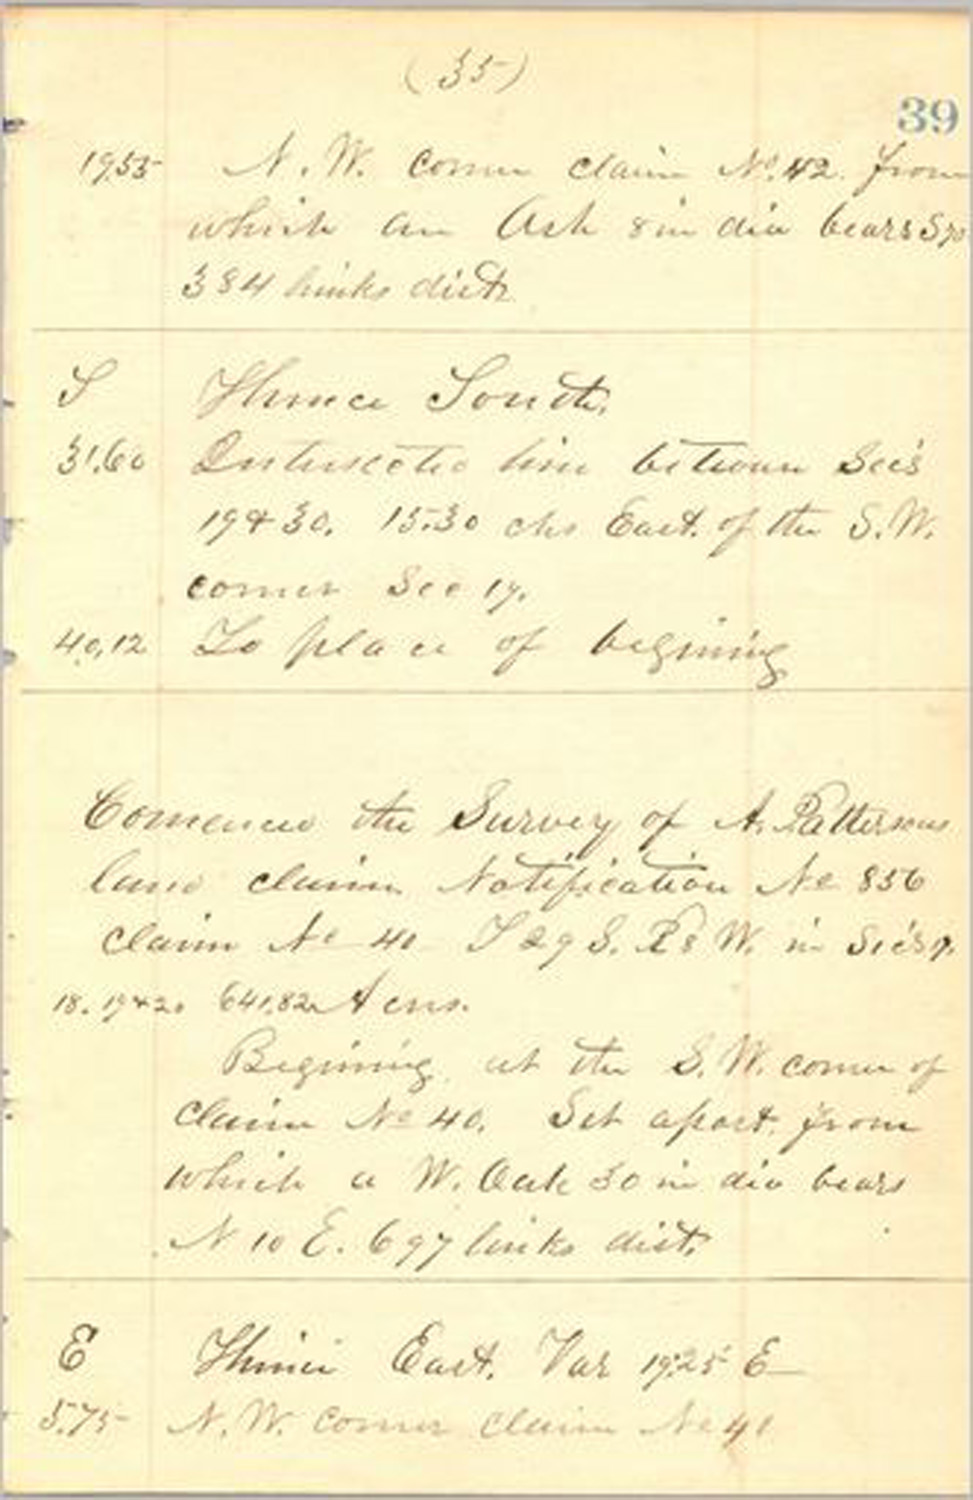 (35)
39
19.55 N. W. corner claim No. 42. from
which an Ash 8 in dia bears S 70
384 links dist
S Thence South.
31.60 Intersected line between Sec's
19 & 30. 15.30 chs East. of the S. W.
corner Sec 19.
40.12 To place of begining
Comence the Survey of A. Pattersons
land claim Notification No 856
claim No 40 T 29 S. R 8 W. in Sec's 7.
18. 19 & 20 641.82 Acres.
Begining at the S. W. corner of
claim No 40. Set a post. from
which a W. Oak 30 in dia bears
N 10 E. 697 links dist.
E Thence East. Var 19.25 E
5.75 N. W. corner claim No 41